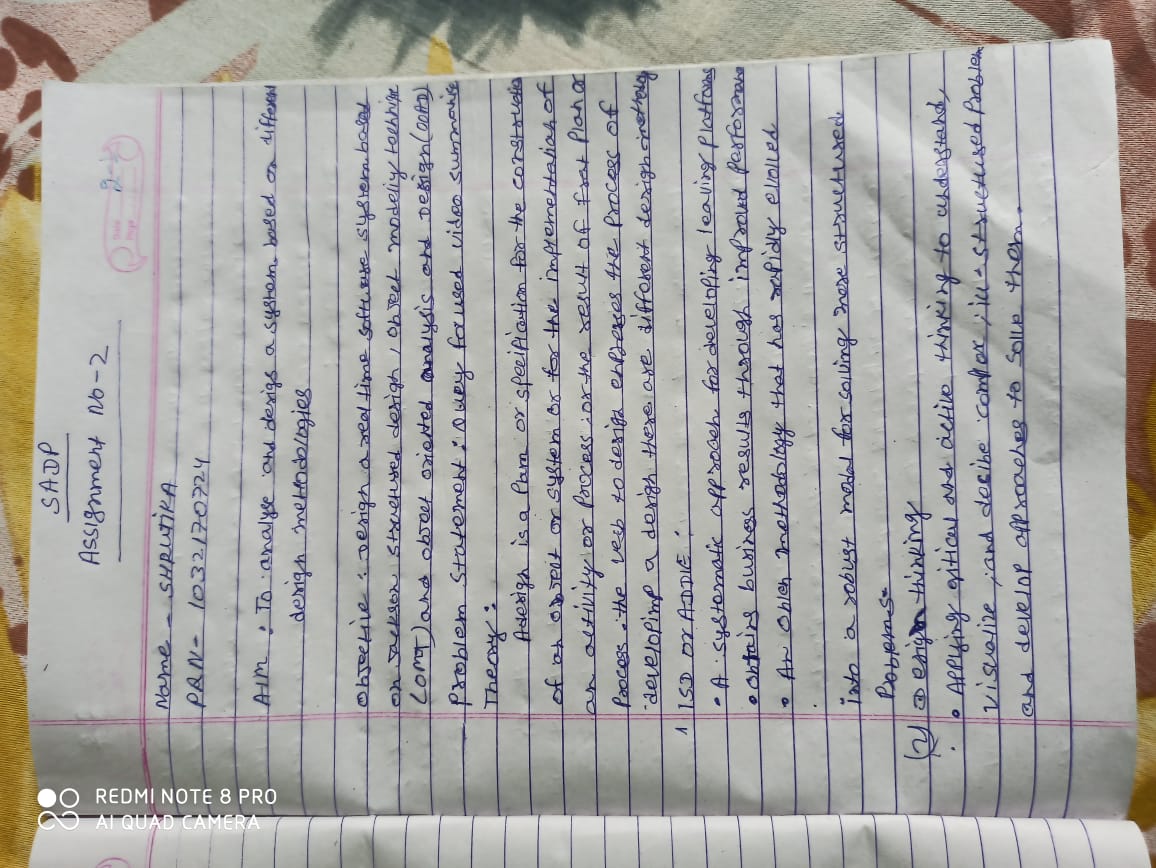 SADP
Assignment No-2
Date
Page
Name - SHRUTIKA
PRN- 1032170724
AIM : To analyse and desigs a system based on different
design methodologies
Objective : Design a real time software system based
on Jackson structured design, object modeliy technique
(OMT) and object oriented analysis and Design (OOAD)
Problem statement : Quey focused video summarise
Theory :
A design is a plam or specification for the constructio
of an object or system or for the implementation of
an activity or Process ; or the result of that plan or
Process . the verb to design expresses the process of
developimp a design there are different design methology
1 ISD or ADDIE :
• A systematic approach for developing leaving platforms
• obtains business results through improved performane
• An oblen methodology that has rapidly evolved
into a robust modal for solving more structured
Poblems
(2) Design thinking
• Applying qitical and active thinking to understand,
visualize , and descibe complox , ill-structused Problem
and develop approaches to solve them.
REDMI NOTE 8 PRO
AI QUAD CAMERA